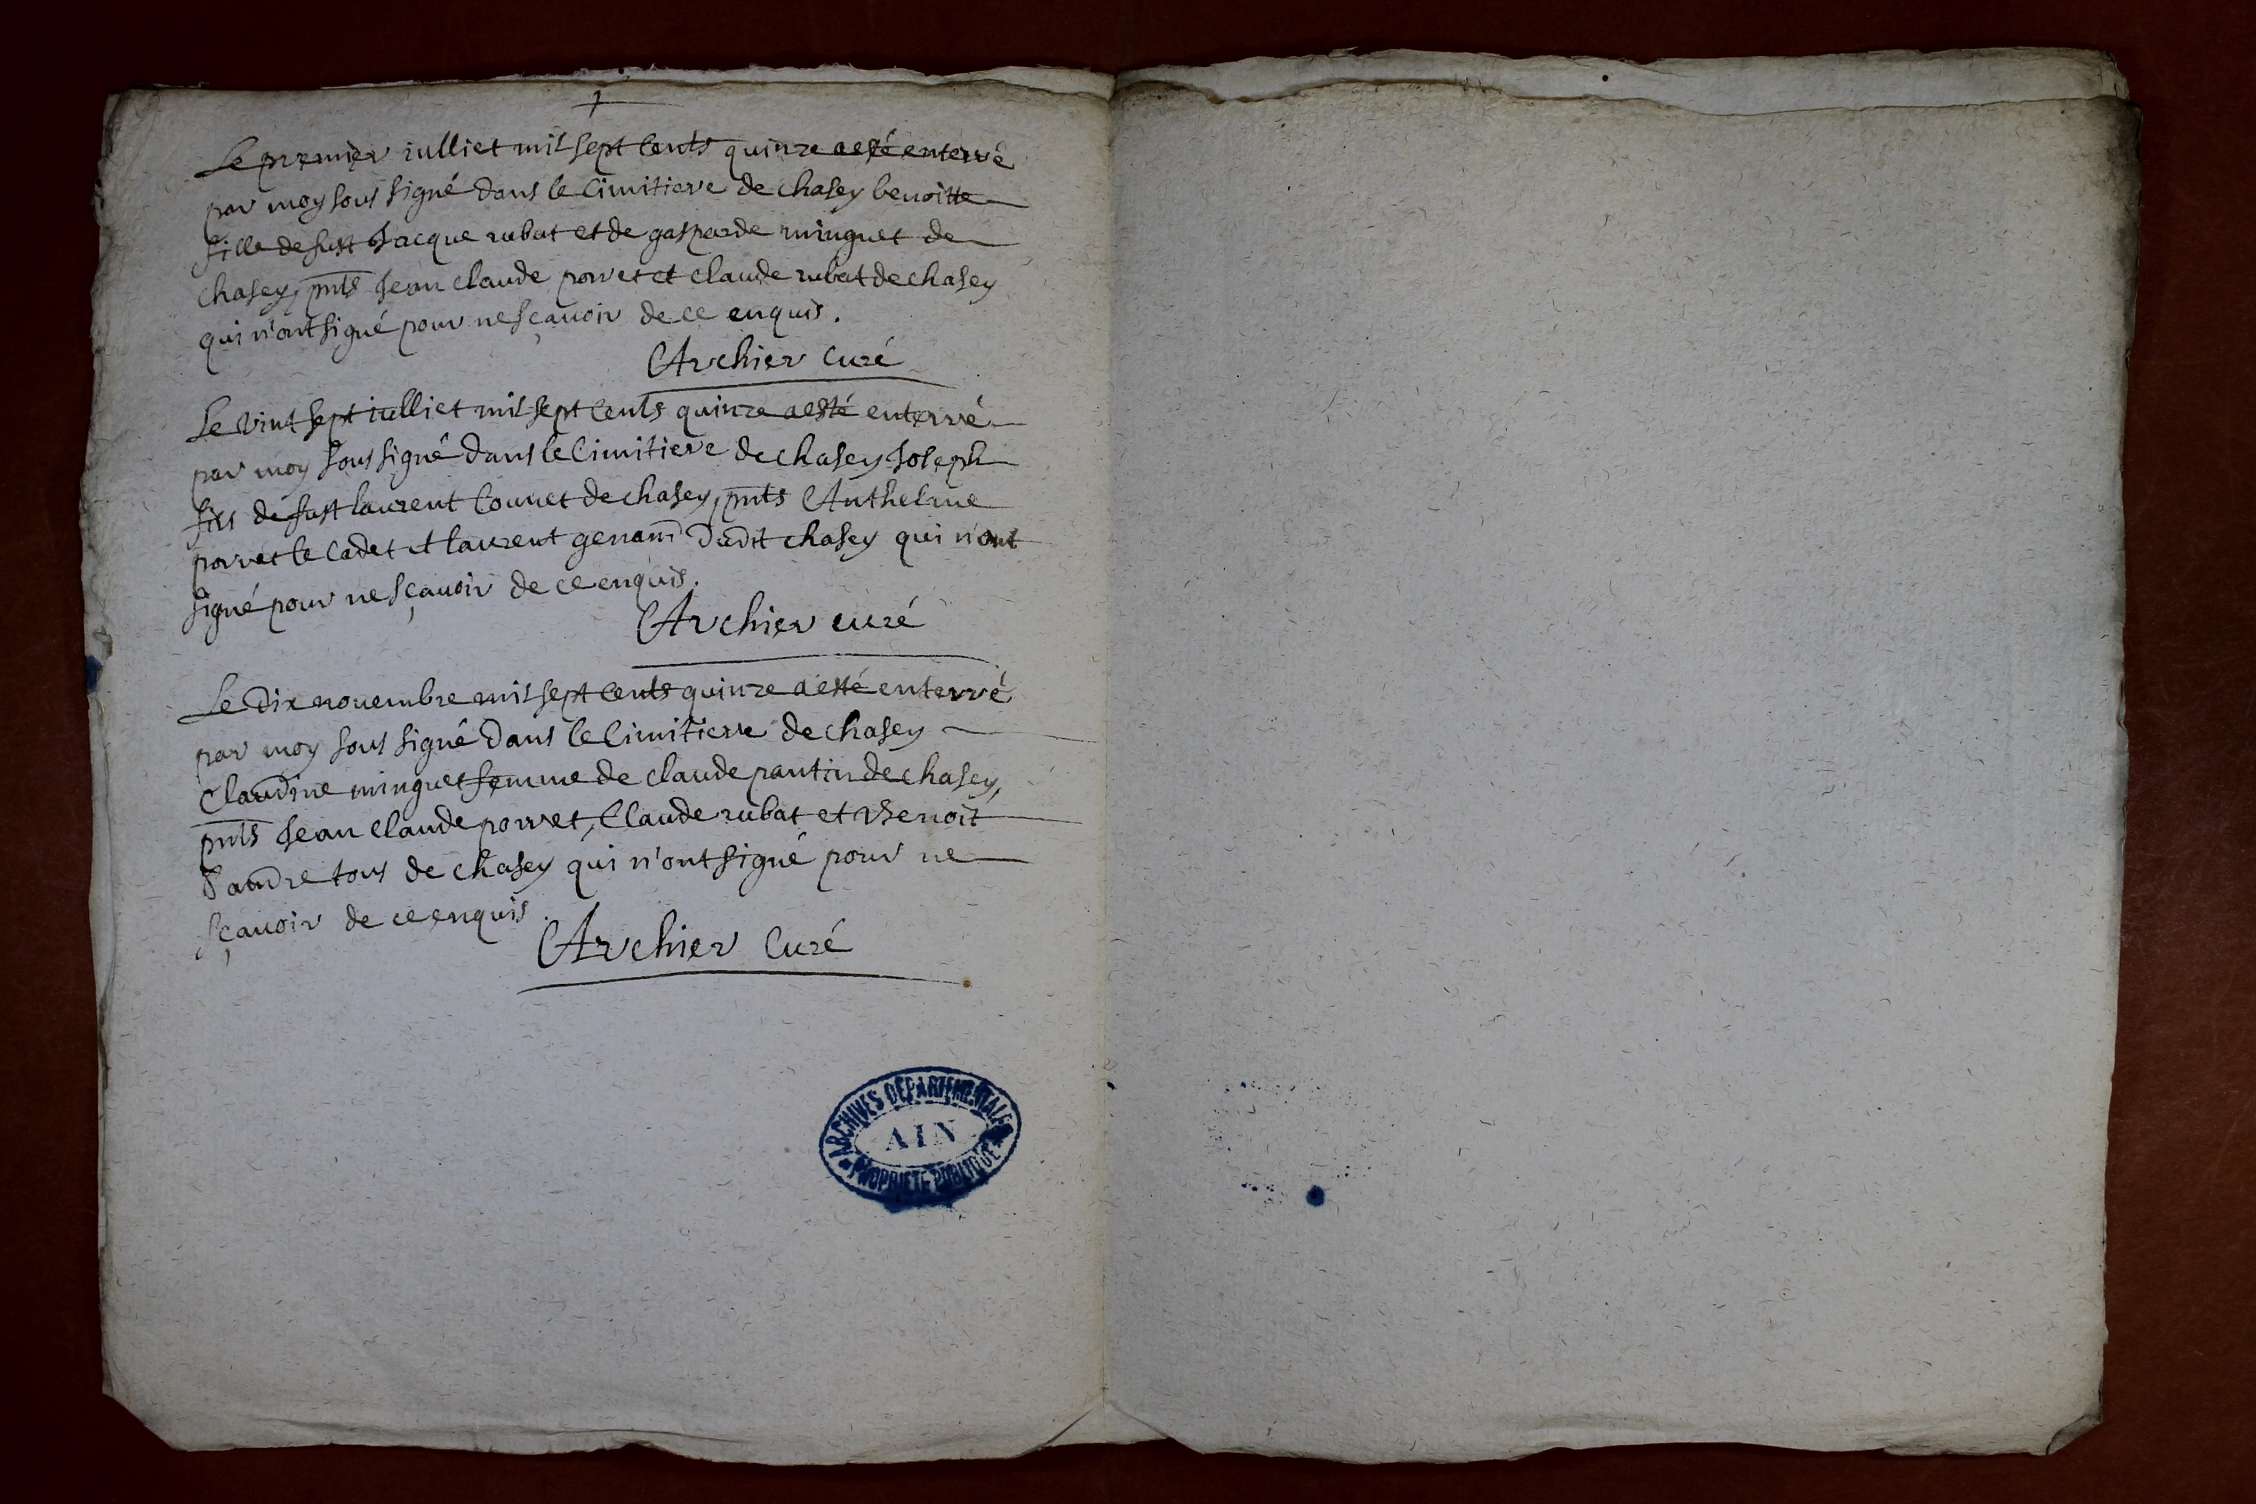 Le premier iulliet mil sept cents quinze a esté enterré
par moy sous signé dans le cimitiere de chasey benoitte
fille de fust Jacque rubat et de gasparde minguet de
chasey, pnts Jean claude porret et claude rubat de chasey
qui n'ont signé pour ne sçavoir de ce enquis.
Archier curé
Le vint sept iulliet mil sept cents quinze a esté enterré
par moy sous signé dans le cimitiere de chasey Joseph
fils de fust laurent Counet de chasey, pnts Anthelme
porret le cadet et laurent genam dudit chasey qui n'ont
signé pour ne sçavoir de ce enquis.
Archier curé
Le dix novembre mil sept cents quinze a esté enterré
par moy sous signé dans le cimitiere de chasey
Claudine minguet femme de claude pantin de chasey,
pnts Jean claude porret, Claude rubat et Benoit
tous de chasey qui n'ont signé pour ne
sçavoir de ce enquis.
Archier Curé
ARCHIVES DÉPARTEMENTALES
AIN
PROPRIÉTÉ PUBLIQUE